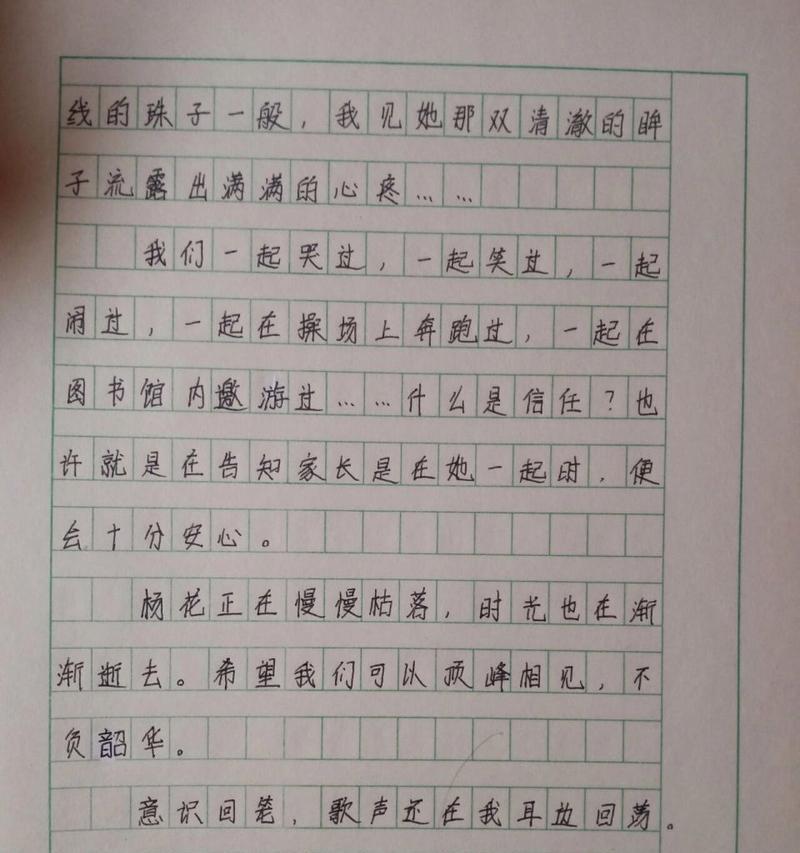 线的珠子一般，我见她那双清澈的眸
子流露出满满的心疼……
我们一起哭过，一起笑过，一起
闹过，一起在操场上奔跑过，一起在
图书馆内邀游过……什么是信任？也
许就是在告知家长是在她一起时，便
会十分安心。
杨花正在慢慢枯落，时光也在渐
渐逝去。希望我们可以顶峰相见，不
负韶华。
意识回笼，歌声还在我耳放回荡。